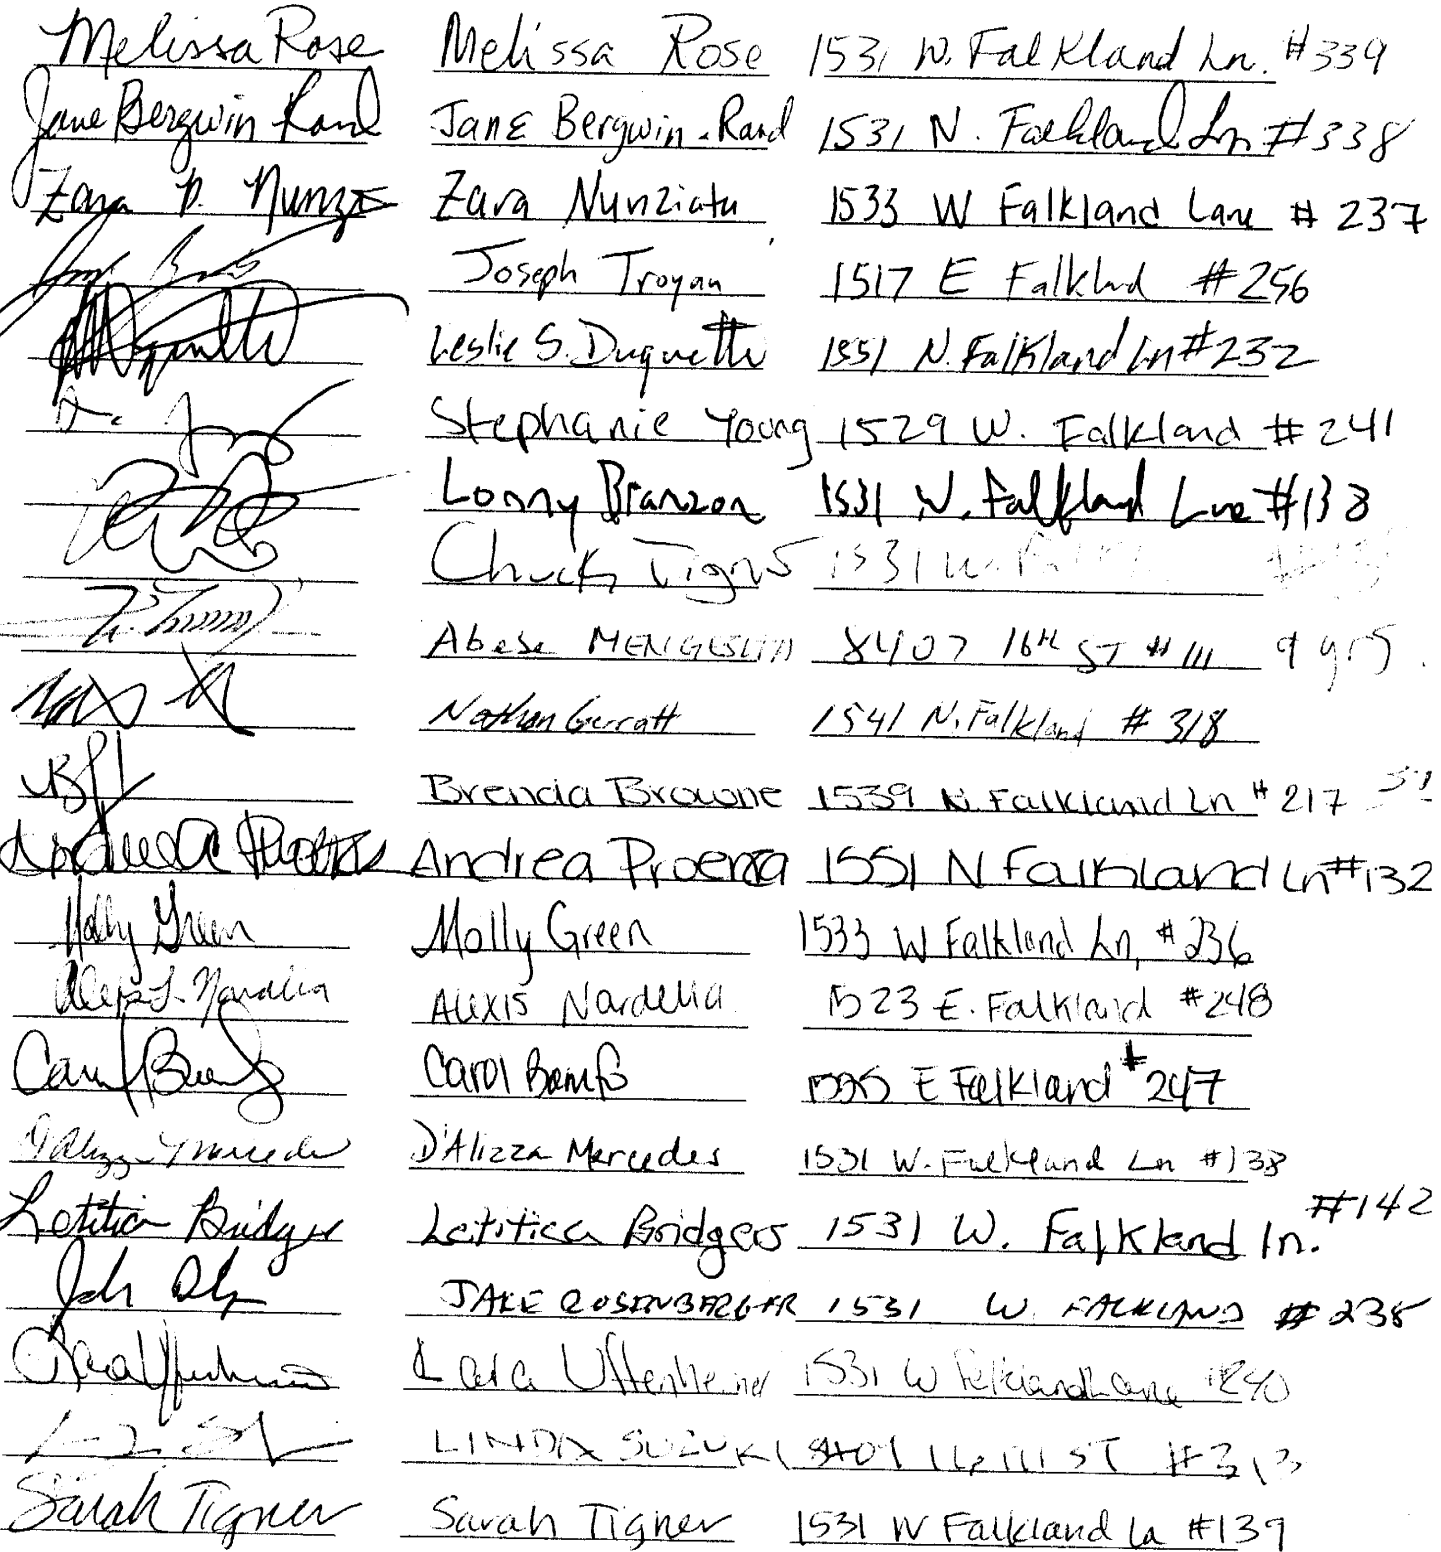 Melissa Rose Melissa Rose 1531 W. Falkland Ln. #339
Jane Bergwin Rand Jane Bergwin-Rand 1531 N. Falkland Ln #338
Zara Nunziata 1533 W Falkland Lane # 237
Joseph Troyan 1517 E Falklnd #256
Leslie S. Duquette 1551 N. Falkland Ln #232
Stephanie Young 1529 W. Falkland # 241
Lonny Branzon 1531 W. Falkland Lne #138
Chuck 1531 W.
Abese 8407 16th ST # 111 9 yrs.
Nathan Garratt 1541 N. Falkland # 318
Brencia Browne 1539 N. Falkland Ln # 217
Andrea Proenza 1551 N Falkland Ln #132
Molly Green Molly Green 1533 W Falkland Ln, #236
Alexis Nardella 1523 E. Falkland #248
Carol E Falkland # 247
D'Alizza Mercedes 1531 W. Falkland Ln #138
Letitia Bridges Letitica Bridges 1531 W. Falkland ln. #142
JAKE ROSENBERGER 1531 W. FALKLAND # 238
Lara Uffenheimer 1531 W Falkland Lane #240
LINDA SUZUKI 16TH ST #313
Sarah Tigner Sarah Tigner 1531 W Falkland la #139